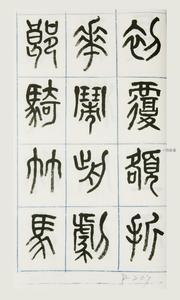 初覆額折
花門前劇
郎騎竹馬